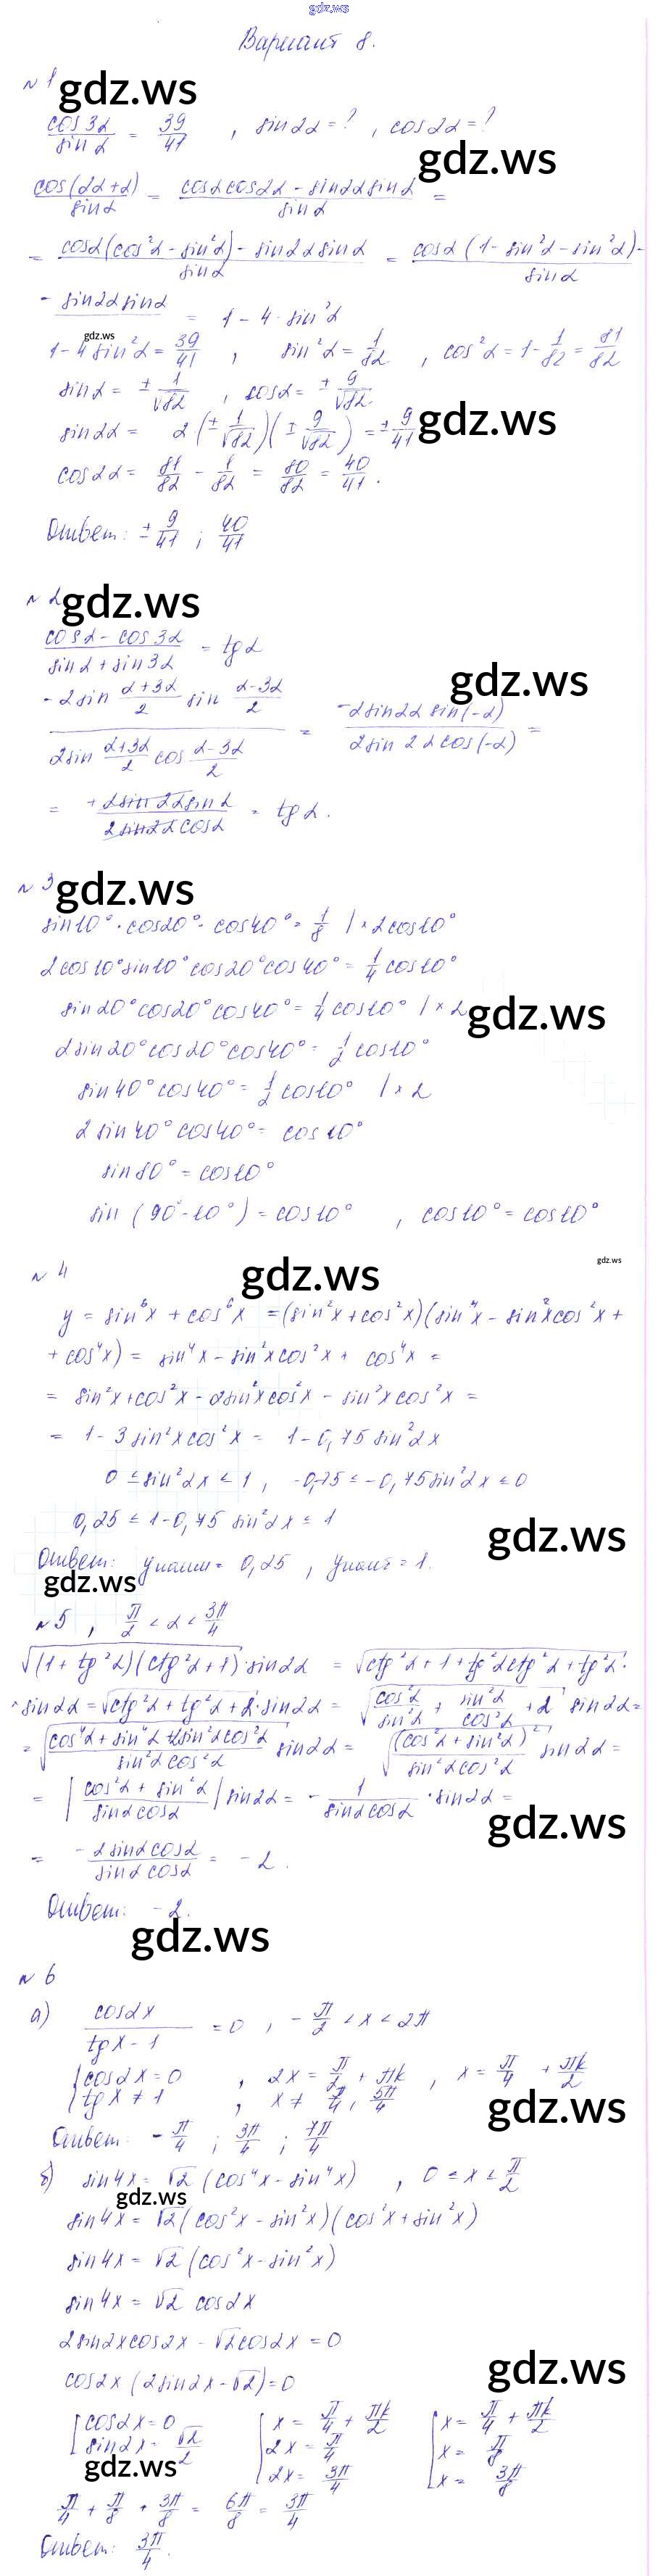 gdz.ws
Вариант 8.
№ 1 gdz.ws
cos 3α / sin α = 39/41 , sin 2α = ? , cos 2α = ?
gdz.ws
cos(2α+α) / sin α = (cosα cos2α − sin2α sinα) / sin α =
= (cosα(cos²α − sin²α) − sin2α sinα) / sin α = (cosα (1 − sin²α − sin²α) −
− sin2α sinα) / sin α = 1 − 4 sin²α
gdz.ws
1 − 4 sin²α = 39/41 , sin²α = 1/82 , cos²α = 1 − 1/82 = 81/82
sin α = ± 1/√82 , cos α = ± 9/√82.
sin 2α = 2 (± 1/√82)(± 9/√82) = ± 9/41 gdz.ws
cos 2α = 81/82 − 1/82 = 80/82 = 40/41.
Ответ: ± 9/41 ; 40/41
№ 2 gdz.ws
(cos α − cos 3α) / (sin α + sin 3α) = tg α
gdz.ws
(−2 sin (α+3α)/2 sin (α−3α)/2) / (2 sin (α+3α)/2 cos (α−3α)/2) = (−2 sin 2α sin(−α)) / (2 sin 2α cos(−α)) =
= (+2 sin 2α sin α) / (2 sin 2α cos α) = tg α.
№ 3 gdz.ws
sin 10° · cos 20° · cos 40° = 1/8 | × 2 cos 10°
2 cos 10° sin 10° cos 20° cos 40° = 1/4 cos 10°
sin 20° cos 20° cos 40° = 1/4 cos 10° | × 2 gdz.ws
2 sin 20° cos 20° cos 40° = 1/2 cos 10°
sin 40° cos 40° = 1/2 cos 10° | × 2
2 sin 40° cos 40° = cos 10°
sin 80° = cos 10°
sin (90° − 10°) = cos 10° , cos 10° = cos 10°
№ 4 gdz.ws gdz.ws
y = sin⁶x + cos⁶x = (sin²x + cos²x)(sin⁴x − sin²x cos²x +
+ cos⁴x) = sin⁴x − sin²x cos²x + cos⁴x =
= sin²x + cos²x − 2 sin²x cos²x − sin²x cos²x =
= 1 − 3 sin²x cos²x = 1 − 0,75 sin²2x
0 ≤ sin²2x ≤ 1 , −0,75 ≤ −0,75 sin²2x ≤ 0
0,25 ≤ 1 − 0,75 sin²2x ≤ 1 gdz.ws
Ответ: y наим = 0,25 , y наиб = 1.
gdz.ws
№ 5 , π/2 < α < 3π/4
√((1 + tg²α)(ctg²α + 1)) · sin 2α = √(ctg²α + 1 + tg²α ctg²α + tg²α) ·
· sin 2α = √(ctg²α + tg²α + 2) · sin 2α = √(cos²α/sin²α + sin²α/cos²α + 2) sin 2α =
= √((cos⁴α + sin⁴α + 2 sin²α cos²α) / (sin²α cos²α)) sin 2α = √((cos²α + sin²α)² / (sin²α cos²α)) sin 2α =
= |(cos²α + sin²α) / (sin α cos α)| sin 2α = − 1/(sin α cos α) · sin 2α =
gdz.ws
= − (2 sin α cos α) / (sin α cos α) = −2.
Ответ: −2.
gdz.ws
№ 6
а) cos 2x / (tg x − 1) = 0 , − π/2 < x < 2π
{ cos 2x = 0 , 2x = π/2 + πk , x = π/4 + πk/2
{ tg x ≠ 1 , x ≠ π/4, 5π/4
gdz.ws
Ответ: − π/4 ; 3π/4 ; 7π/4
б) sin 4x = √2 (cos⁴x − sin⁴x) , 0 ≤ x ≤ π/2
gdz.ws
sin 4x = √2 (cos²x − sin²x)(cos²x + sin²x)
sin 4x = √2 (cos²x − sin²x)
sin 4x = √2 cos 2x
2 sin 2x cos 2x − √2 cos 2x = 0
cos 2x (2 sin 2x − √2) = 0 gdz.ws
[ cos 2x = 0 [ x = π/4 + πk/2 [ x = π/4 + πk/2
[ sin 2x = √2/2 [ 2x = π/4 [ x = π/8
gdz.ws [ 2x = 3π/4 [ x = 3π/8
π/4 + π/8 + 3π/8 = 6π/8 = 3π/4
Ответ: 3π/4.